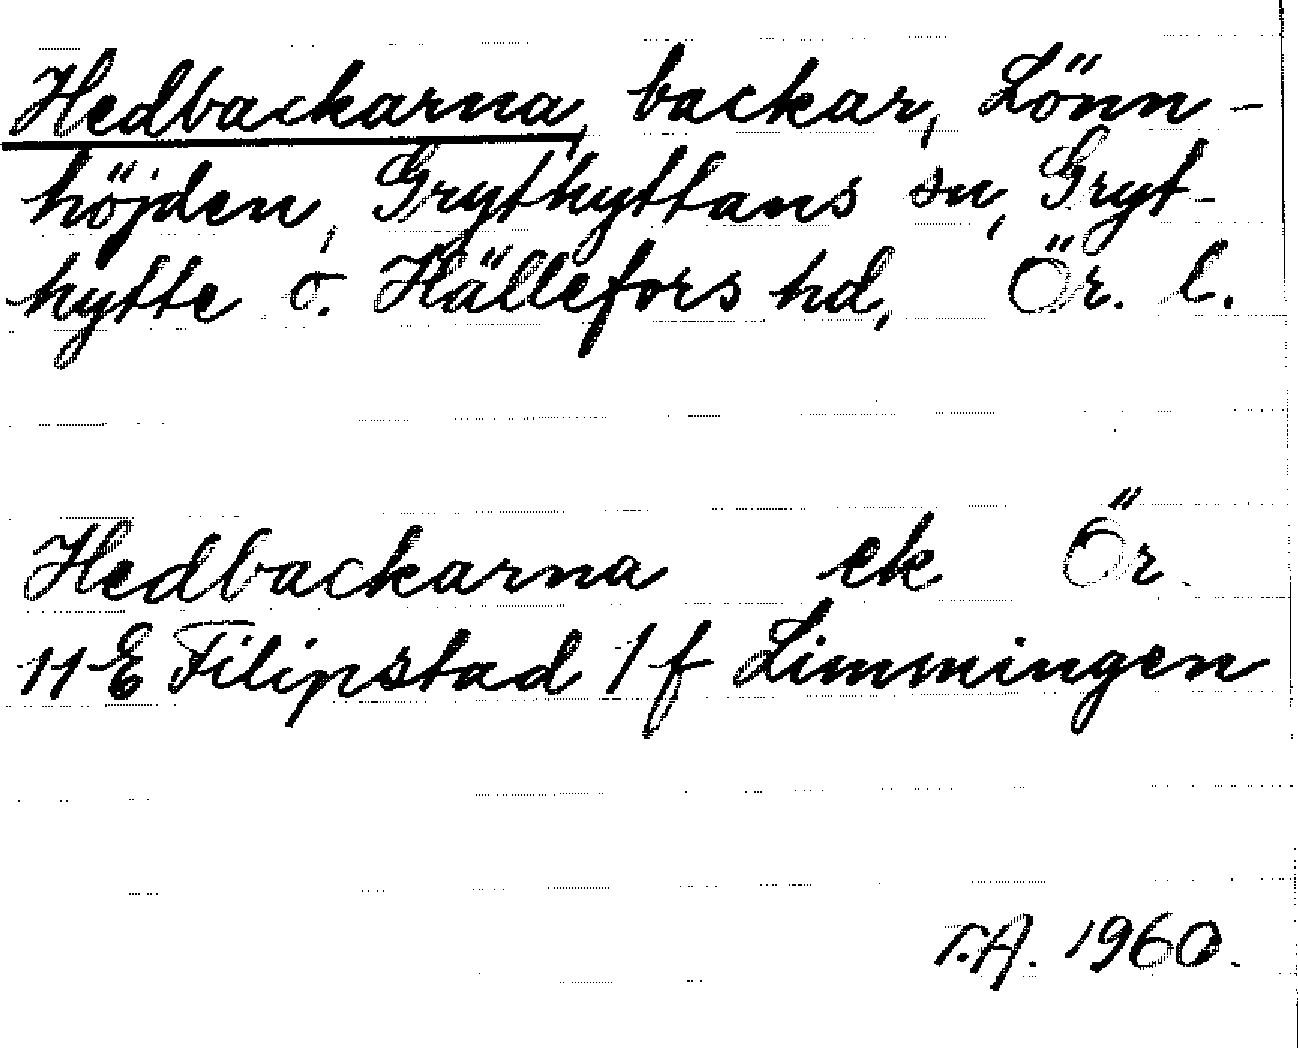 Hedbackarna, backar, Lönn-
höjden, Grythyttans sn, Gryt-
hytte o. Hällefors hd, Ör. l.
Hedbackarna ek Ör.
11 E Filipstad 1 f Limmingen
T.A. 1960.